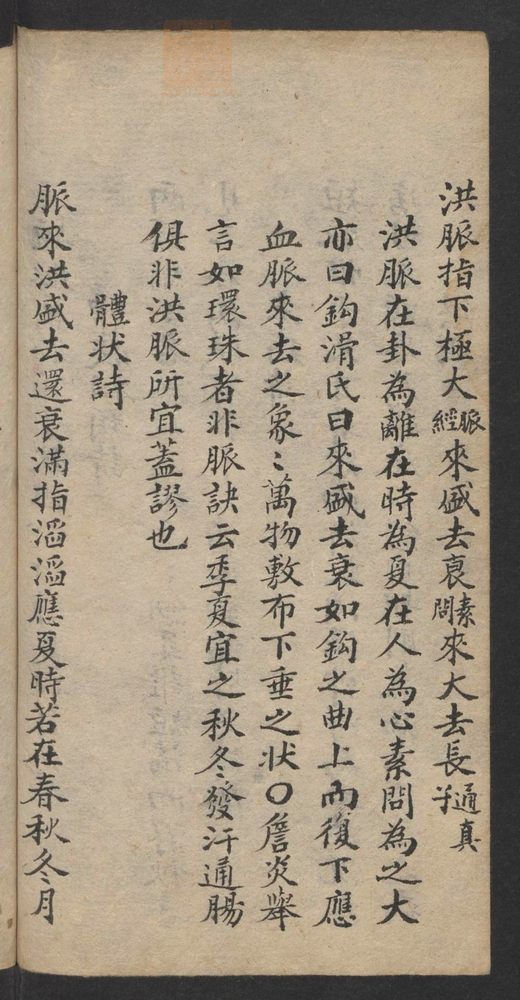 洪脈指下極大脈經來盛去衰素問來大去長通真子
洪脈在卦為離在時為夏在人為心素問為之大
亦曰鈎滑氏曰來盛去衰如鈎之曲上而復下應
血脈來去之象〻萬物敷布下垂之状〇詹炎舉
言如環珠者非脈訣云季夏宜之秋冬發汗通腸
俱非洪脈所宜蓋謬也
體状詩
脈來洪盛去還衰滿指滔滔應夏時若在春秋冬月